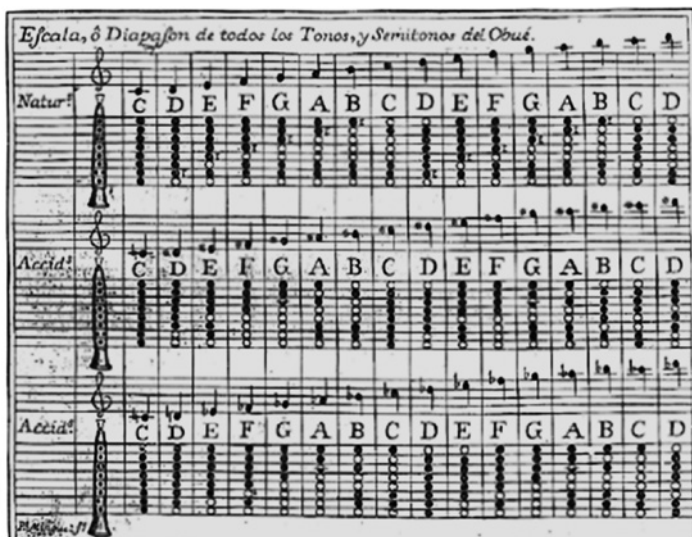 Eſcala, ô Diapaſon de todos los Tonos, y Semitonos del Obué.
Natur.^s
C D E F G A B C D E F G A B C D
Accid.^s
C D E F G A B C D E F G A B C D
Accid.^s
C D E F G A B C D E F G A B C D